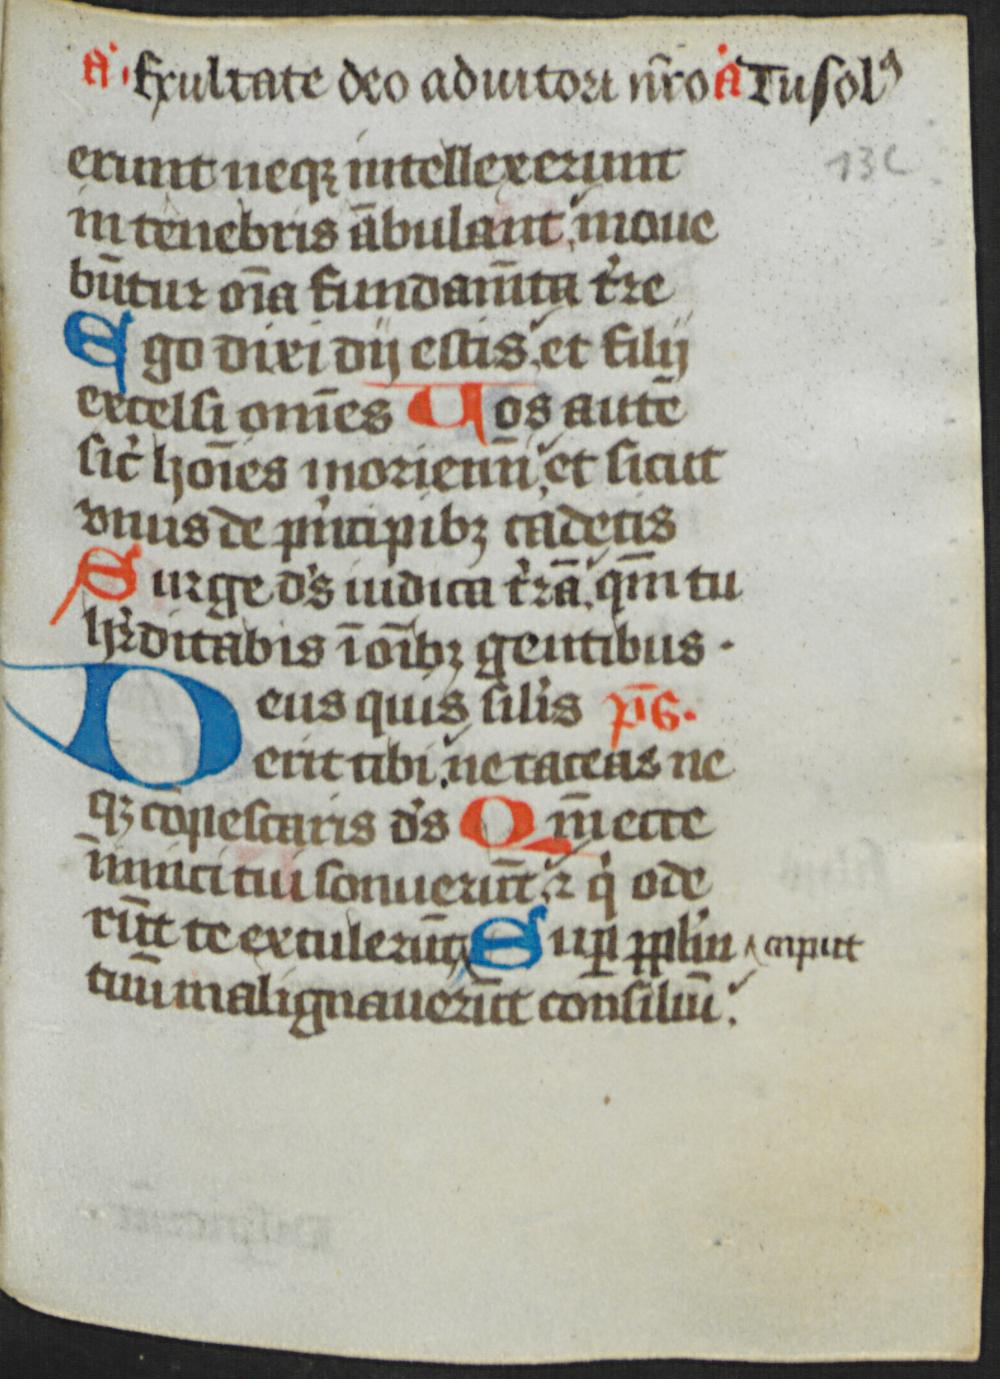 A. Exultate deo adiutori nr̄o A Tu solꝰ
erunt neqꝫ intellexerunt
in tenebris ābulant, moue
būtur om̄a fundam̄ta t̓re
Ego dixi dij estis, et filij
excelsi om̄es Uos autē
sic̓ hoīes moriem̄i, et sicut
vnus de pͥncipibꝫ cadetis
Surge dꝰs iudica t̓rā, qm̄ tu
hr̓ditabis ī oībꝫ gentibus .
Deus quis sil̓is ps̄.
erit tibi, ne taceas ne
qꝫ cōpescaris dꝰs Qm̄ ecce
inimici tui sonuerūt, ⁊ qͥ ode
rūt te extulerūt Suꝑ pp̄lm̄ caput
tuū malignauerūt consiliū.
13c